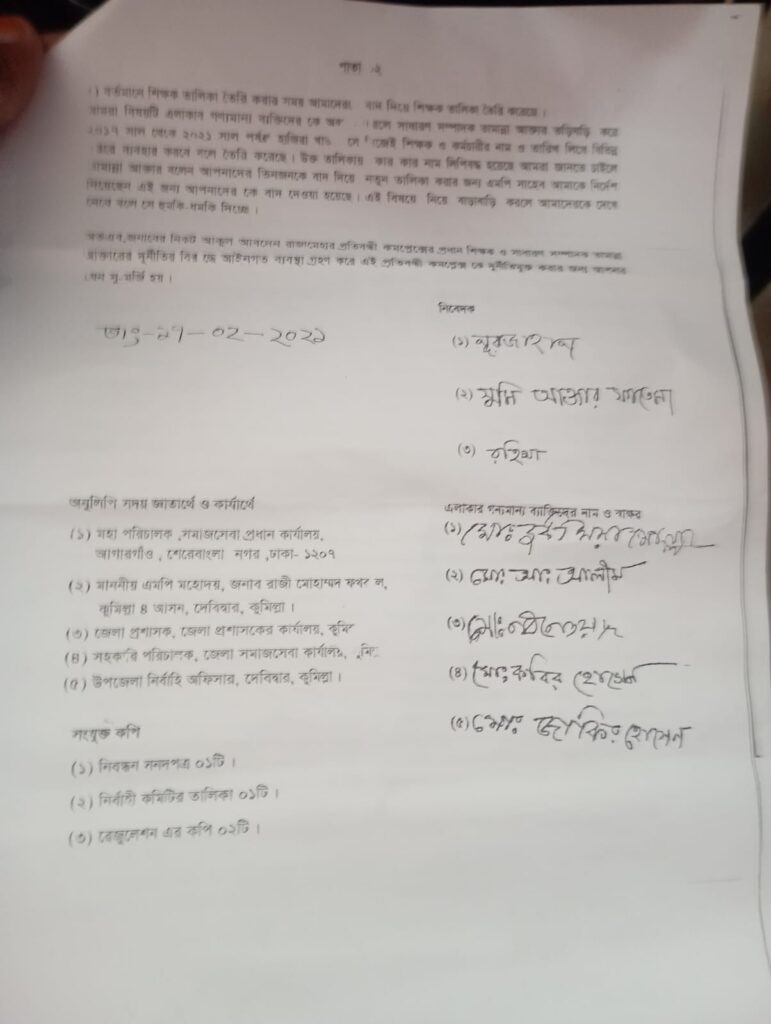 পাতা -২
বর্তমানে শিক্ষক তালিকা তৈরি করার সময় আমাদের বাদ দিয়ে শিক্ষক তালিকা তৈরি করেছে।
আমরা বিষয়টি এলাকার গন্যমান্য ব্যক্তিদের কে সাধারণ সম্পাদক তামান্না আক্তার তড়িঘড়ি করে
২০১৭ সাল থেকে ২০২১ সাল পর্যন্ত হাজিরা শিক্ষক ও কর্মচারীর নাম ও তারিখ লিখে বিভিন্ন
ব্যবহার করবে বলে তৈরি করেছে। উক্ত তালিকায় কার কার নাম লিপিবদ্ধ হয়েছে আমরা জানতে চাইলে
তামান্না আক্তার বলেন আপনাদের তিনজনকে বাদ দিয়ে নতুন তালিকা করার জন্য এমপি সাহেব আমাকে নির্দেশ
দিয়েছেন এই জন্য আপনাদের কে বাদ দেওয়া হয়েছে। এই বিষয়ে নিয়ে বাড়াবাড়ি করলে আমাদেরকে দেখে
নেবে বলে সে হুমকি-ধমকি দিচ্ছে।
অতএব, জনাবের নিকট আকুল আবেদন রাজামেহার প্রতিবন্ধী কমপ্লেক্সের প্রধান শিক্ষক ও সাধারণ সম্পাদক তামান্না
আক্তারের দুর্নীতির বির দ্ধে আইনগত ব্যবস্থা গ্রহণ করে এই প্রতিবন্ধী কমপ্লেক্স কে দুর্নীতিমুক্ত করার জন্য আপনার
সু-মর্জি হয়।
নিবেদক
তাং-১৭-০২-২০২১
(১) নুরজাহান
(২) মুন্নি আক্তার
(৩) রহিমা
অনুলিপি সদয় জ্ঞাতার্থে ও কার্যার্থে
(১) মহা পরিচালক, সমাজসেবা প্রধান কার্যালয়,
আগারগাঁও, শেরেবাংলা নগর, ঢাকা- ১২০৭
(২) মাননীয় এমপি মহোদয়, জনাব রাজী মোহাম্মদ ফখর ল,
কুমিল্লা ৪ আসন, দেবিদ্বার, কুমিল্লা।
(৩) জেলা প্রশাসক, জেলা প্রশাসকের কার্যালয়, কুমি
(৪) সহকারি পরিচালক, জেলা সমাজসেবা কার্যালয়,
(৫) উপজেলা নির্বাহি অফিসার, দেবিদ্বার, কুমিল্লা।
এলাকার গন্যমান্য ব্যাক্তিদের নাম ও স্বাক্ষর
(১) মোঃ
(২) মোঃ আঃ আলীম
(৩) মোঃ
(৪) মোঃ কবির হোসেন
(৫) মোঃ জাকির হোসেন
সংযুক্ত কপি
(১) নিবন্ধন সনদপত্র ০১টি।
(২) নির্বাহী কমিটির তালিকা ০১টি।
(৩) রেজুলেশন এর কপি ০২টি।